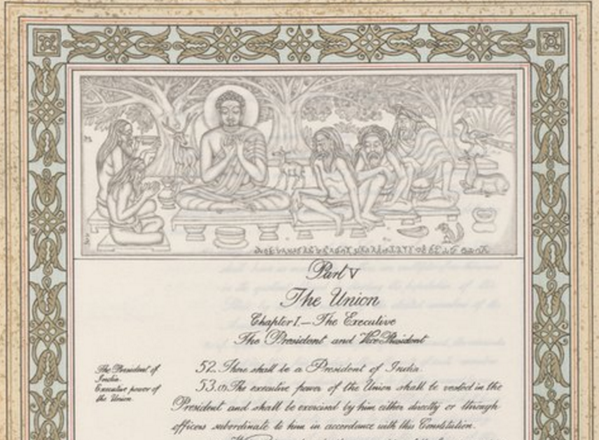 Part V
The Union
Chapter I.—The Executive
The President and Vice-President
The President of
India.
Executive power of
the Union.
52. There shall be a President of India.
53.(1) The executive power of the Union shall be vested in the
President and shall be exercised by him either directly or through
officers subordinate to him in accordance with this Constitution.